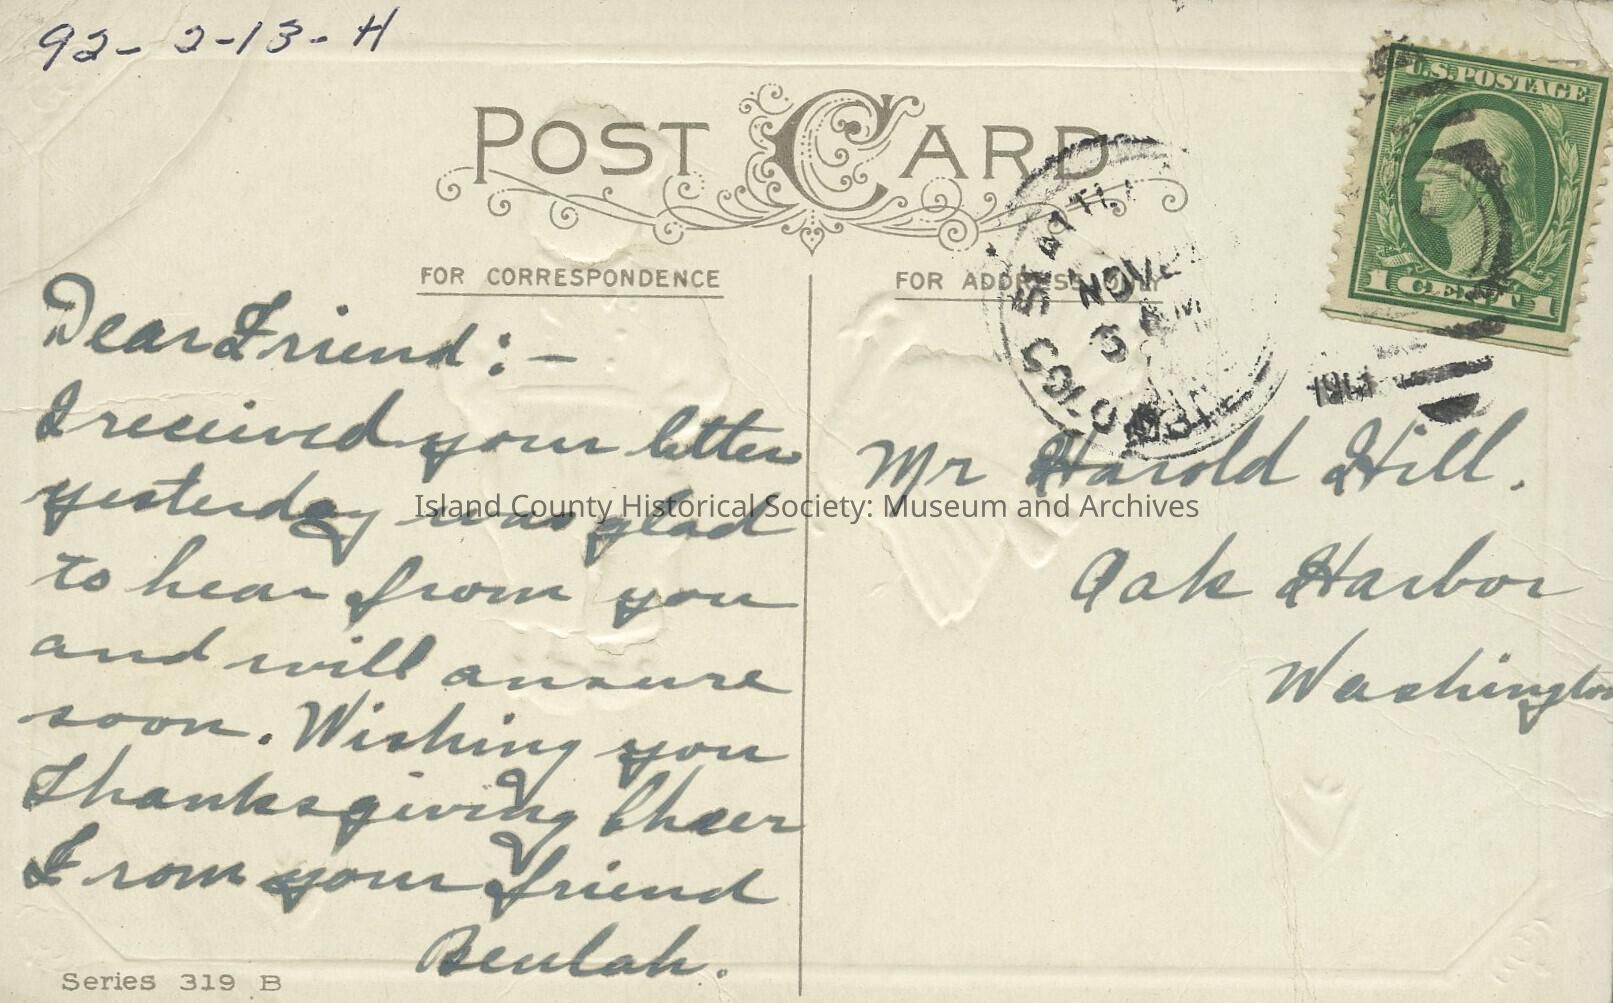 92-2-13-H
POST CARD
U.S. POSTAGE
1 CENT 1
FOR CORRESPONDENCE
FOR ADDRESS ONLY
SEATTL
NOV
AM
COLUMBI
Dear Friend:—
I received your letter
yesterday was glad
to hear from you
and will ansure
soon. Wishing you
Thanksgiving Cheer
From your friend
Beulah.
Mr Harold Hill.
Oak Harbor
Washington
Island County Historical Society: Museum and Archives
Series 319 B